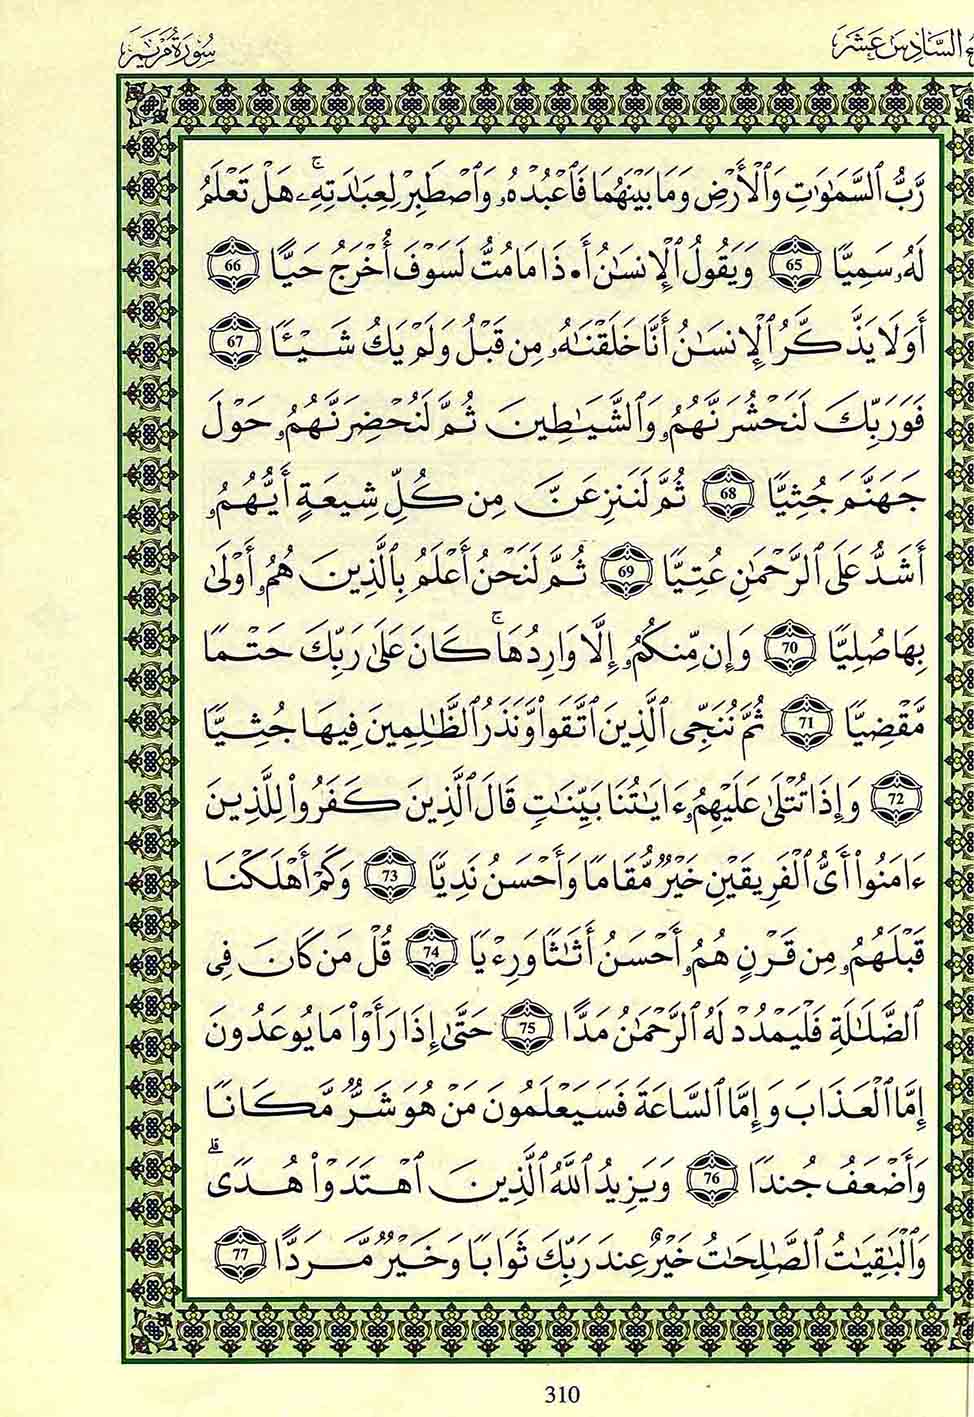 ء السَّادِس عَشَرَ
سُورَةُ مَرْيَمَ
رَّبُّ ٱلسَّمَٰوَٰتِ وَٱلْأَرْضِ وَمَا بَيْنَهُمَا فَٱعْبُدْهُۥ وَٱصْطَبِرْ لِعِبَٰدَتِهِۦۚ هَلْ تَعْلَمُ
لَهُۥ سَمِيًّا 65 وَيَقُولُ ٱلْإِنسَٰنُ أَ•ذَا مَا مُتُّ لَسَوْفَ أُخْرَجُ حَيًّا 66
أَوَلَا يَذَّكَّرُ ٱلْإِنسَٰنُ أَنَّا خَلَقْنَٰهُۥ مِن قَبْلُ وَلَمْ يَكُ شَيْـًٔا 67
فَوَرَبِّكَ لَنَحْشُرَنَّهُمُۥ وَٱلشَّيَٰطِينَ ثُمَّ لَنُحْضِرَنَّهُمُۥ حَوْلَ
جَهَنَّمَ جُثِيًّا 68 ثُمَّ لَنَنزِعَنَّ مِن كُلِّ شِيعَةٍ أَيُّهُمُۥ
أَشَدُّ عَلَى ٱلرَّحْمَٰنِ عُتِيًّا 69 ثُمَّ لَنَحْنُ أَعْلَمُ بِٱلَّذِينَ هُمُۥ أَوْلَىٰ
بِهَا صُلِيًّا 70 وَإِن مِّنكُمُۥ إِلَّا وَارِدُهَاۚ كَانَ عَلَىٰ رَبِّكَ حَتْمًا
مَّقْضِيًّا 71 ثُمَّ نُنَجِّى ٱلَّذِينَ ٱتَّقَوا۟ وَّنَذَرُ ٱلظَّٰلِمِينَ فِيهَا جُثِيًّا
72 وَإِذَا تُتْلَىٰ عَلَيْهِمُۥ ءَايَٰتُنَا بَيِّنَٰتٍ قَالَ ٱلَّذِينَ كَفَرُوا۟ لِلَّذِينَ
ءَامَنُوٓا۟ أَىُّ ٱلْفَرِيقَيْنِ خَيْرٌ مُّقَامًا وَأَحْسَنُ نَدِيًّا 73 وَكَمْ أَهْلَكْنَا
قَبْلَهُمُۥ مِن قَرْنٍ هُمُۥ أَحْسَنُ أَثَٰثًا وَرِءْيًا 74 قُلْ مَن كَانَ فِى
ٱلضَّلَٰلَةِ فَلْيَمْدُدْ لَهُ ٱلرَّحْمَٰنُ مَدًّا 75 حَتَّىٰ إِذَا رَأَوْا۟ مَا يُوعَدُونَ
إِمَّا ٱلْعَذَابَ وَإِمَّا ٱلسَّاعَةَ فَسَيَعْلَمُونَ مَنْ هُوَ شَرٌّ مَّكَانًا
وَأَضْعَفُ جُندًا 76 وَيَزِيدُ ٱللَّهُ ٱلَّذِينَ ٱهْتَدَوْا۟ هُدًىۗ
وَٱلْبَٰقِيَٰتُ ٱلصَّٰلِحَٰتُ خَيْرٌ عِندَ رَبِّكَ ثَوَابًا وَخَيْرٌ مَّرَدًّا 77
310